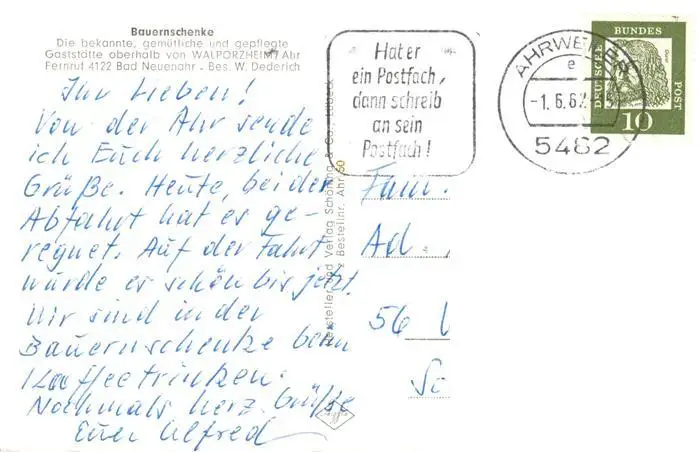 Bauernschenke
Die bekannte, gemütliche und gepflegte
Gaststätte oberhalb von WALPORZHEIM/Ahr
Fernruf 4122 Bad Neuenahr - Bes. W. Dederich
Ihr Lieben!
Von der Ahr sende
ich Euch herzliche
Grüße. Heute, bei der
Abfahrt hat es ge-
regnet. Auf der Fahrt
wurde es schön bis jetzt.
Wir sind in der
Bauernschenke beim
Kaffeetrinken.
Nochmals herz. Grüße
Euer Alfred
Hersteller und Verlag Schöning & Co., Lübeck
Bestellnr. Ahr 50
Hat er
ein Postfach,
dann schreib
an sein
Postfach!
AHRWEILER
e
-1.6.62
5482
DEUTSCHE
BUNDES
POST
10
Fam.
Ad
56